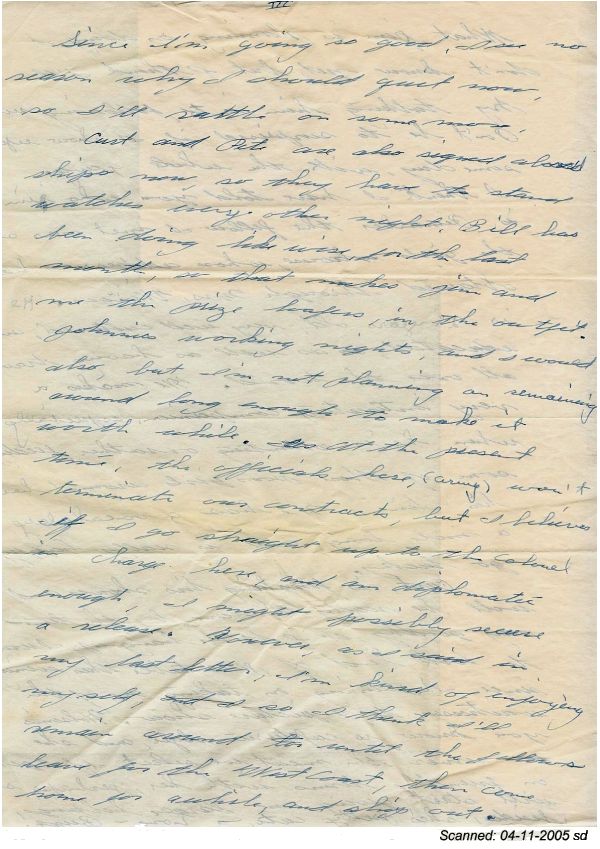 III
Since I'm going so good, I see no
reason why I should quit now,
so I'll rattle on some more.
Curt and Pete are also signed aboard
ships now, so they have to stand
watches every other night. Bill has
been doing likewise, for the last
month, so that makes Jim and
me the prize loafers, in the outfit.
Johnnies working nights, and I would
also, but I'm not planning on remaining
around long enough to make it
worth while. At the present
time, the officials here, (army) won't
terminate our contracts, but I believe
if I go straight up to the Colonel
in charge here, and am diplomatic
enough, I might possibly secure
a release. However, as I said in
my last letter, I'm kind of enjoying
myself, and so I think I'll
remain around until the fellows
leave for the West Coast, then come
home for awhile, and ship out.
Scanned: 04-11-2005 sd